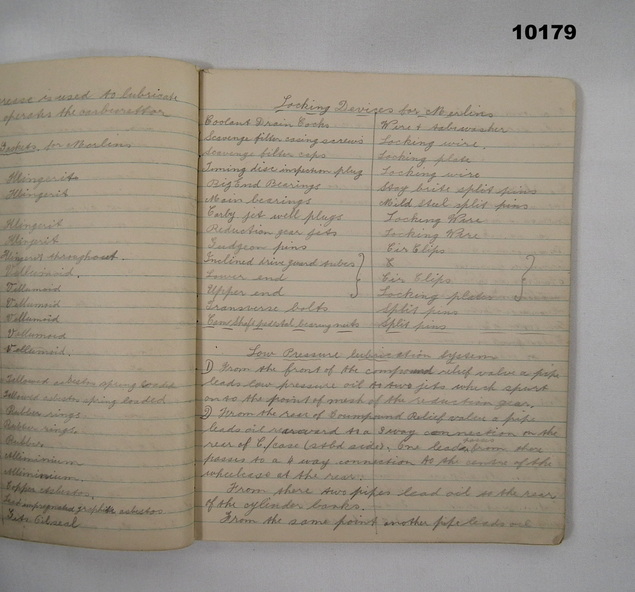 10179
is used to lubricate
operate the carburettor
for Merlins
Klingerite
Klingerit
Klingerit
Klingerit
Klingerit throughout.
Vellumoid.
Vellumoid
Vellumoid
Vellumoid
Vellumoid
Vellumoid.
asbestos spring loaded
spring loaded
Rubber rings
Rubber rings
Rubber
Alluminium
Alluminium.
Copper asbestos.
impregnated graphite asbestos
Oilseal
Locking Devices for Merlins
Coolant Drain Cocks Wire & tabwasher
Scavenge filter casing screws Locking wire.
Scavenge filter caps Locking plate
Timing disc inspection plug Locking wire
Big End Bearings Stay brite split pins
Main bearings Mild steel split pins
Carby jet well plugs Locking Wire
Reduction gear jets Locking Wire
Gudgeon pins Cir Clips
Inclined drive guard tubes
Lower end Cir Clips
Upper end Locking plates
Transverse bolts Split pins
Cam Shaft pedestal bearing nuts Split pins
Low Pressure lubrication System
1) From the front of the compound relief valve a pipe
leads low pressure oil to two jets which spurt
on to the point of mesh of the reduction gear.
2) From the rear of Compound Relief valve a pipe
leads oil rearward to a 3 way connection on the
rear of C/case (stbd side). One lead from there
passes to a 4 way connection at the centre of the
wheelcase at the rear.
From there two pipes lead oil to the rear
of the cylinder banks.
From the same point another pipe leads oil